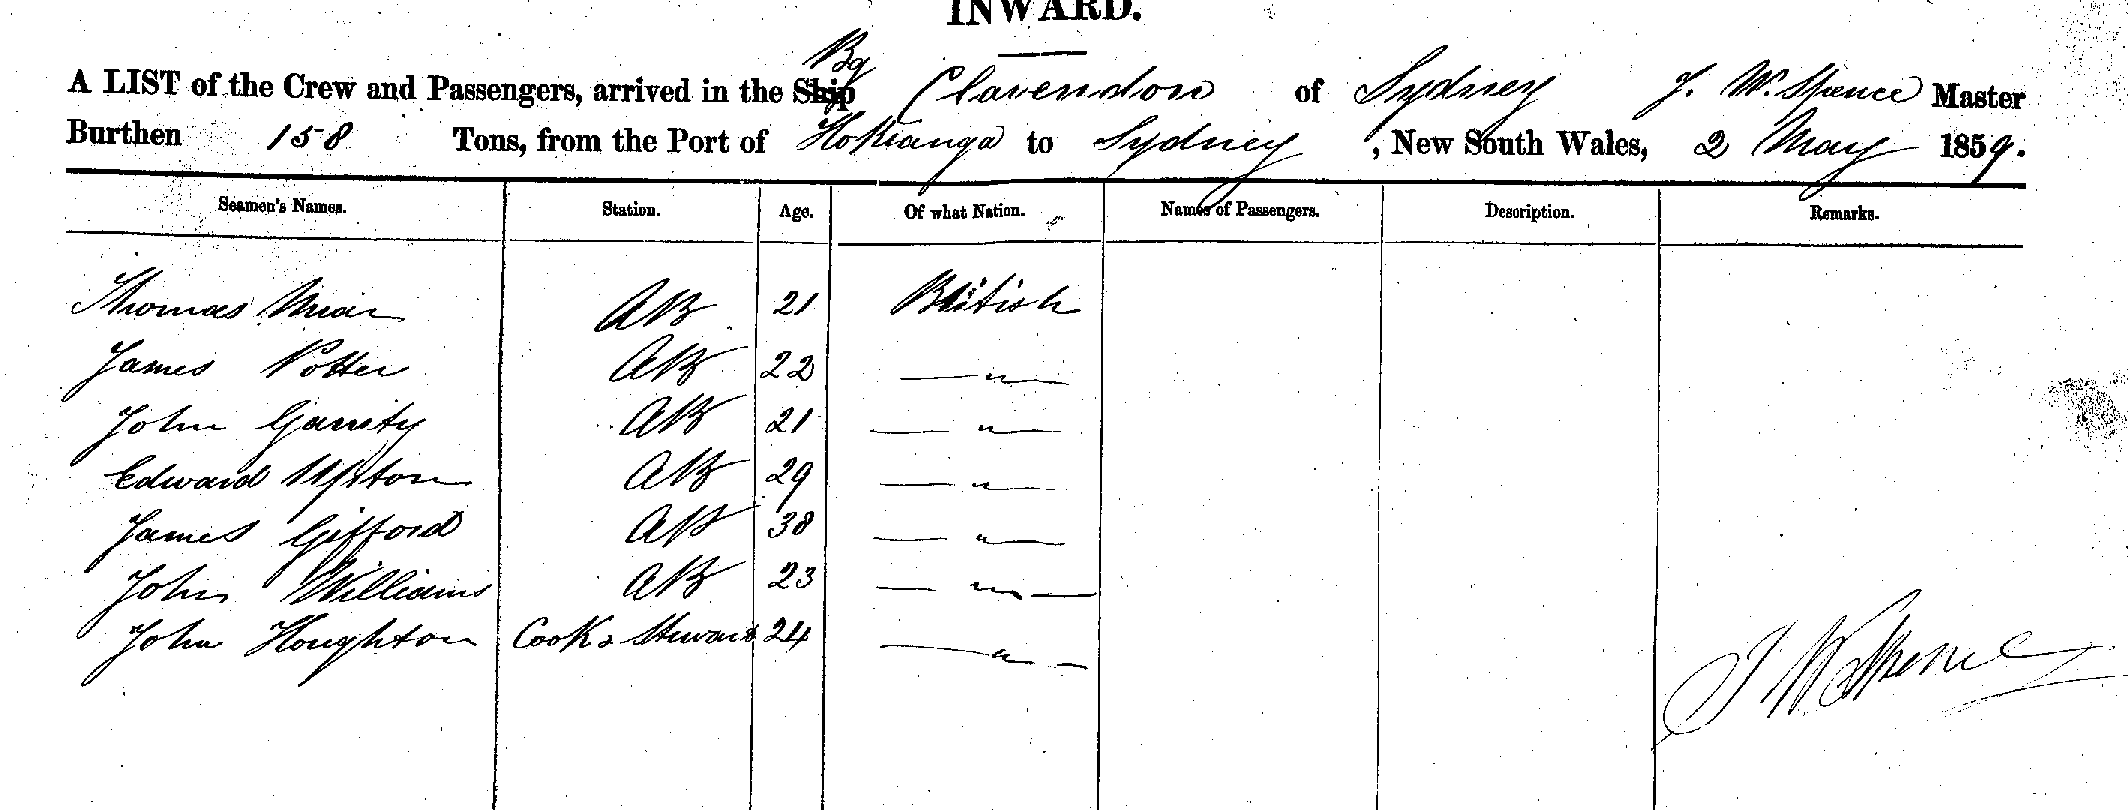 INWARD.
A LIST of the Crew and Passengers, arrived in the Ship Bg Clarendon of Sydney J. W. Spence Master
Burthen 158 Tons, from the Port of Hokianga to Sydney, New South Wales, 2 May 1859.
Seamen's Names. Station. Age. Of what Nation. Names of Passengers. Description. Remarks.
Thomas AB 21 British
James Potter AB 22 — " —
John Garrity AB 21 — " —
Edward Upton AB 29 — " —
James Gifford AB 38 — " —
John Williams AB 23 — " —
John Houghton Cook & Steward 24 — " —
J W Spence